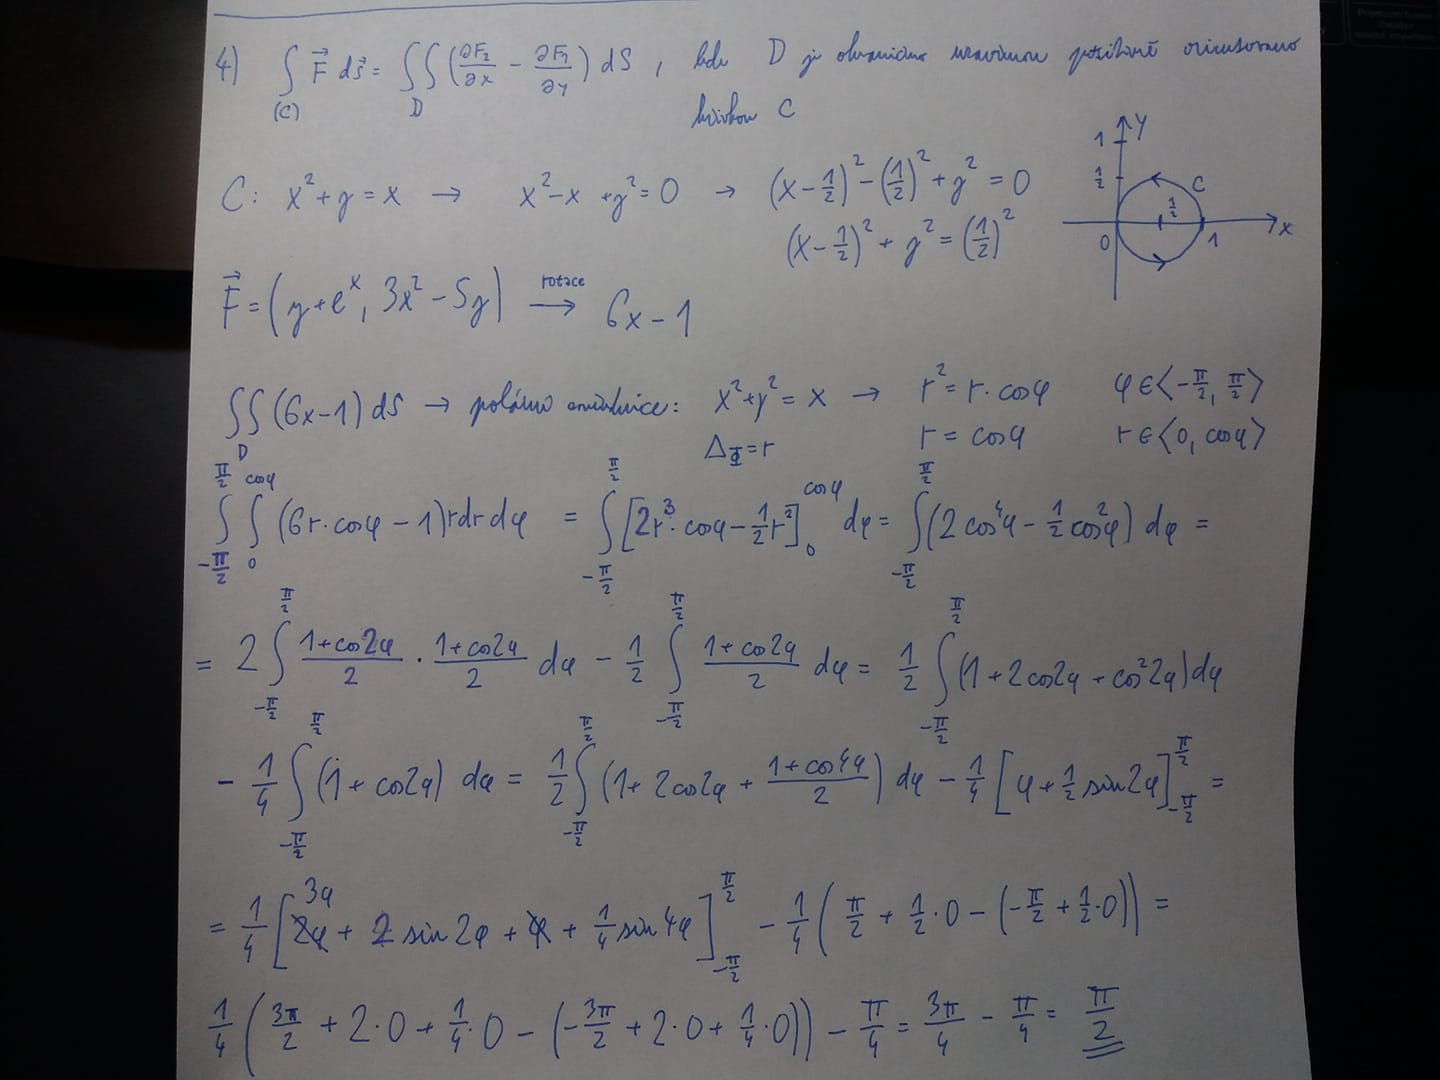 4) ∫(C) F⃗ ds⃗ = ∬D (∂F₂/∂x − ∂F₁/∂y) dS, kde D je ohraničena uzavřenou pozitivně orientovanou
křivkou C
C: x² + y = x → x² − x + y² = 0 → (x − 1/2)² − (1/2)² + y² = 0
(x − 1/2)² + y² = (1/2)²
y 1 1/2 C 1/2 0 1 x
F⃗ = (y + eˣ, 3x² − 5y) rotace → 6x − 1
∬D (6x − 1) dS → polární souřadnice: x² + y² = x → r² = r · cosφ φ ∈ ⟨−π/2, π/2⟩
Δ_Φ = r r = cosφ r ∈ ⟨0, cosφ⟩
∫_{−π/2}^{π/2} ∫_0^{cosφ} (6r · cosφ − 1) r dr dφ = ∫_{−π/2}^{π/2} [2r³ · cosφ − 1/2 r²]_0^{cosφ} dφ = ∫_{−π/2}^{π/2} (2cos⁴φ − 1/2 cos²φ) dφ =
= 2 ∫_{−π/2}^{π/2} (1+cos2φ)/2 · (1+cos2φ)/2 dφ − 1/2 ∫_{−π/2}^{π/2} (1+cos2φ)/2 dφ = 1/2 ∫_{−π/2}^{π/2} (1 + 2cos2φ + cos²2φ) dφ
− 1/4 ∫_{−π/2}^{π/2} (1 + cos2φ) dφ = 1/2 ∫_{−π/2}^{π/2} (1 + 2cos2φ + (1+cos4φ)/2) dφ − 1/4 [φ + 1/2 sin2φ]_{−π/2}^{π/2} =
= 1/4 [3φ + 2 sin2φ + 1/4 sin4φ]_{−π/2}^{π/2} − 1/4 (π/2 + 1/2 · 0 − (−π/2 + 1/2 · 0)) =
1/4 (3π/2 + 2 · 0 + 1/4 · 0 − (−3π/2 + 2 · 0 + 1/4 · 0)) − π/4 = 3π/4 − π/4 = π/2